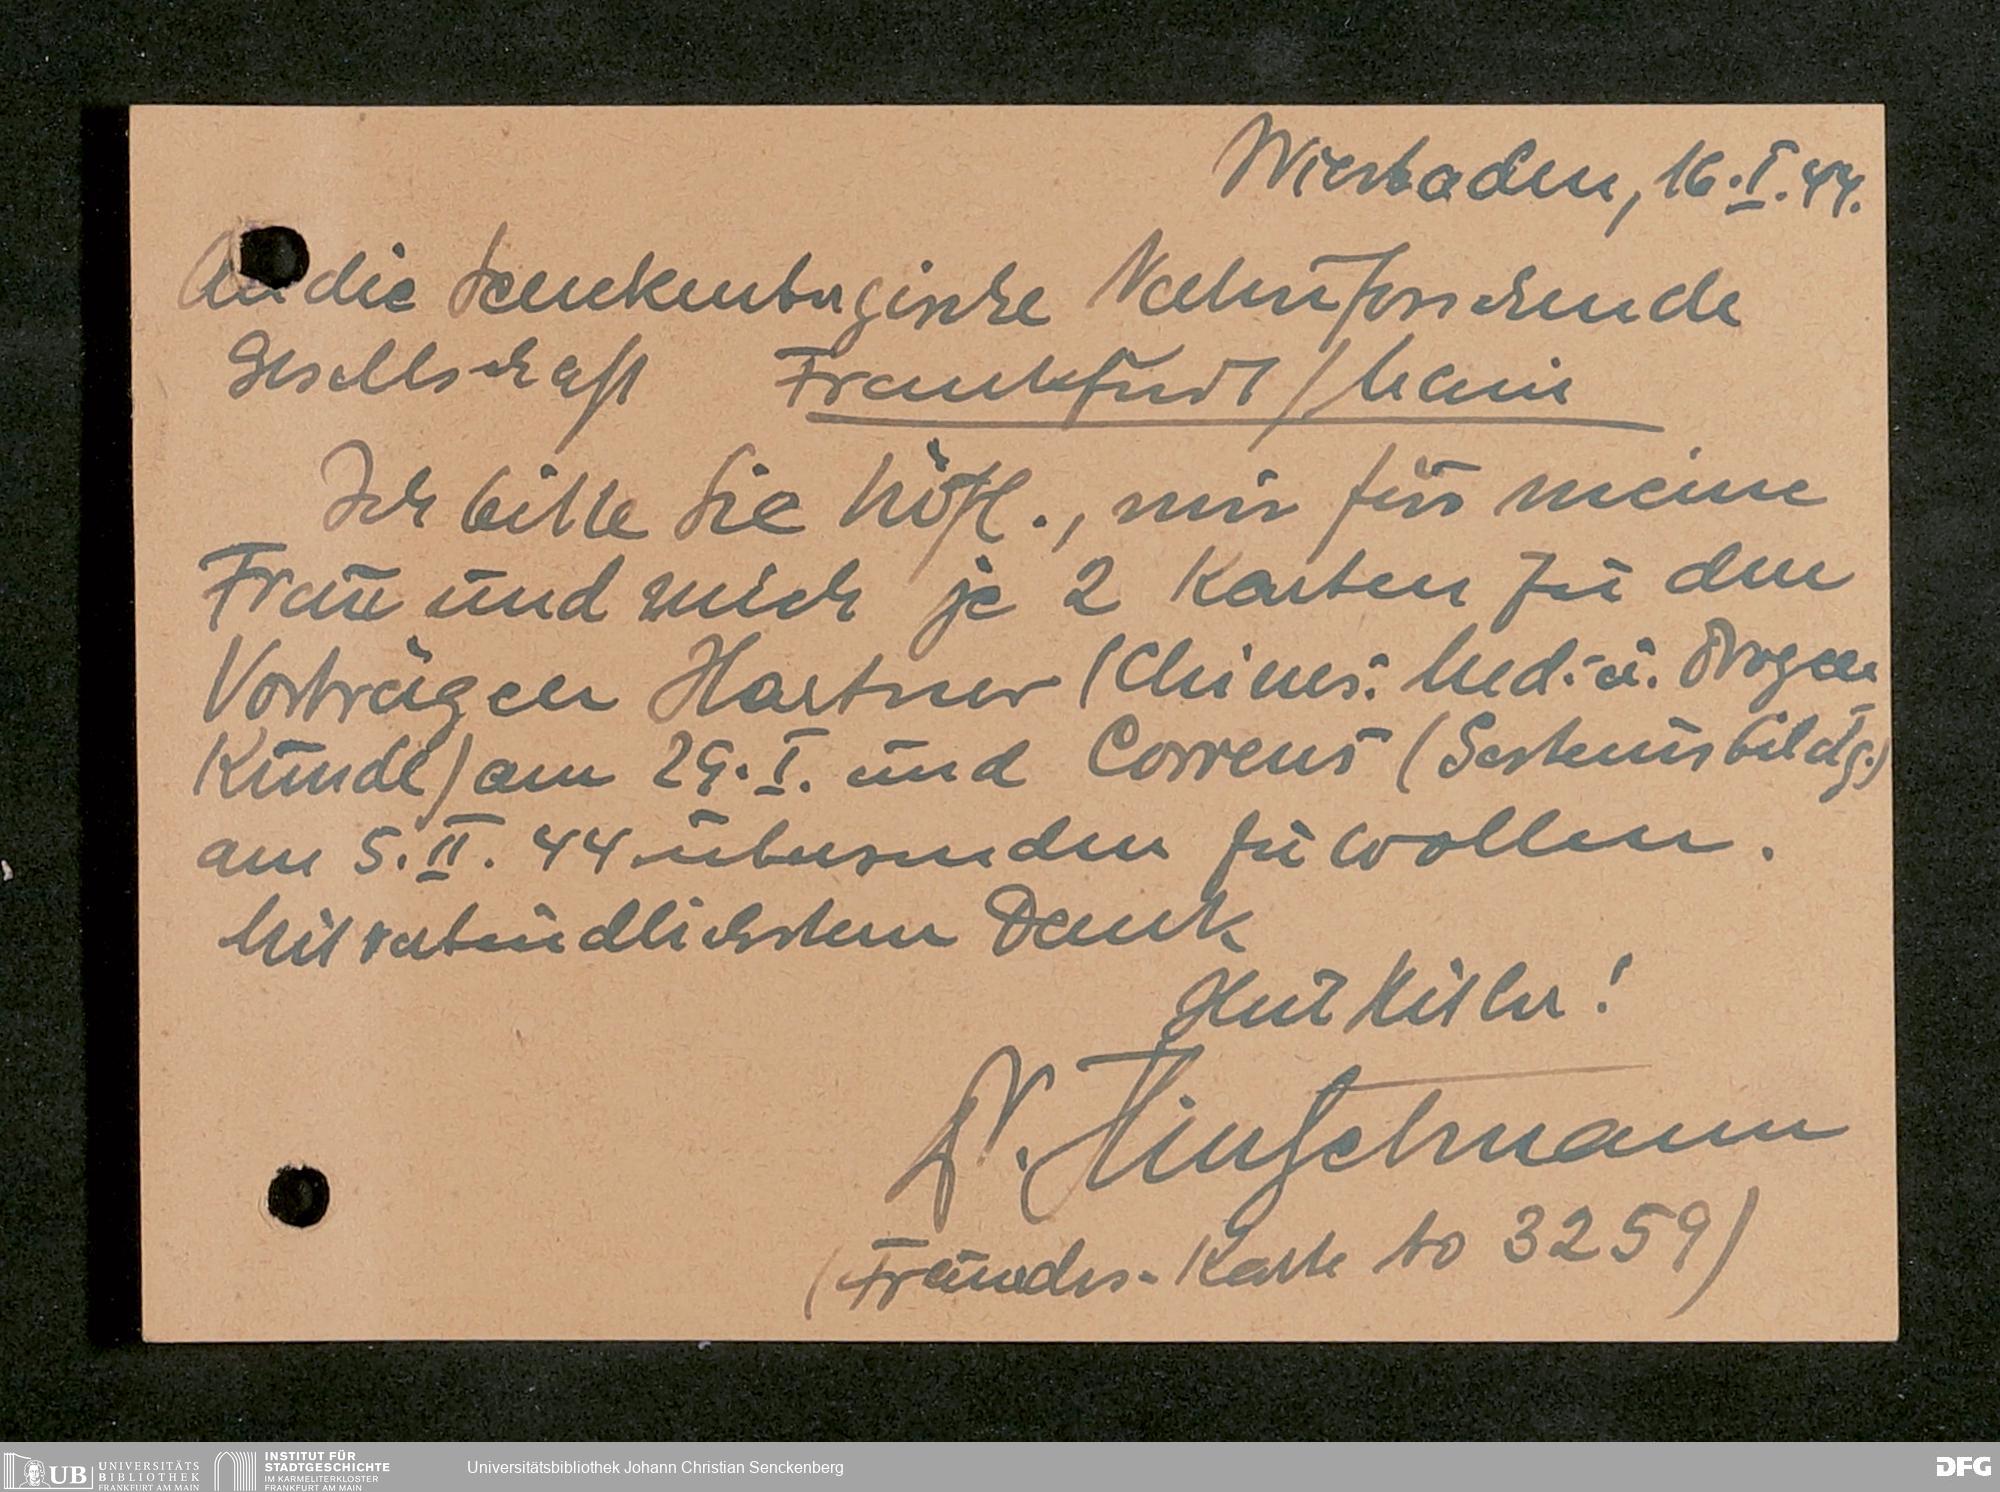 Wiesbaden, 16.I.44.
An die Senckenbergische Naturforschende
Gesellschaft Frankfurt/Main
Ich bitte Sie höfl., mir für meine
Frau und mich je 2 Karten zu den
Vorträgen Hartner (Chines. Med. u. Drogen
Kunde) am 29.I. und Correns (Gesteinsbildg.)
am 5.II.44 übersenden zu wollen.
Mit verbindlichstem Dank
Heil Hitler!
Dr. Hintzelmann
(Freundes-Karte No 3259)
UB UNIVERSITÄTS
BIBLIOTHEK
FRANKFURT AM MAIN
INSTITUT FÜR
STADTGESCHICHTE
IM KARMELITERKLOSTER
FRANKFURT AM MAIN
Universitätsbibliothek Johann Christian Senckenberg
DFG